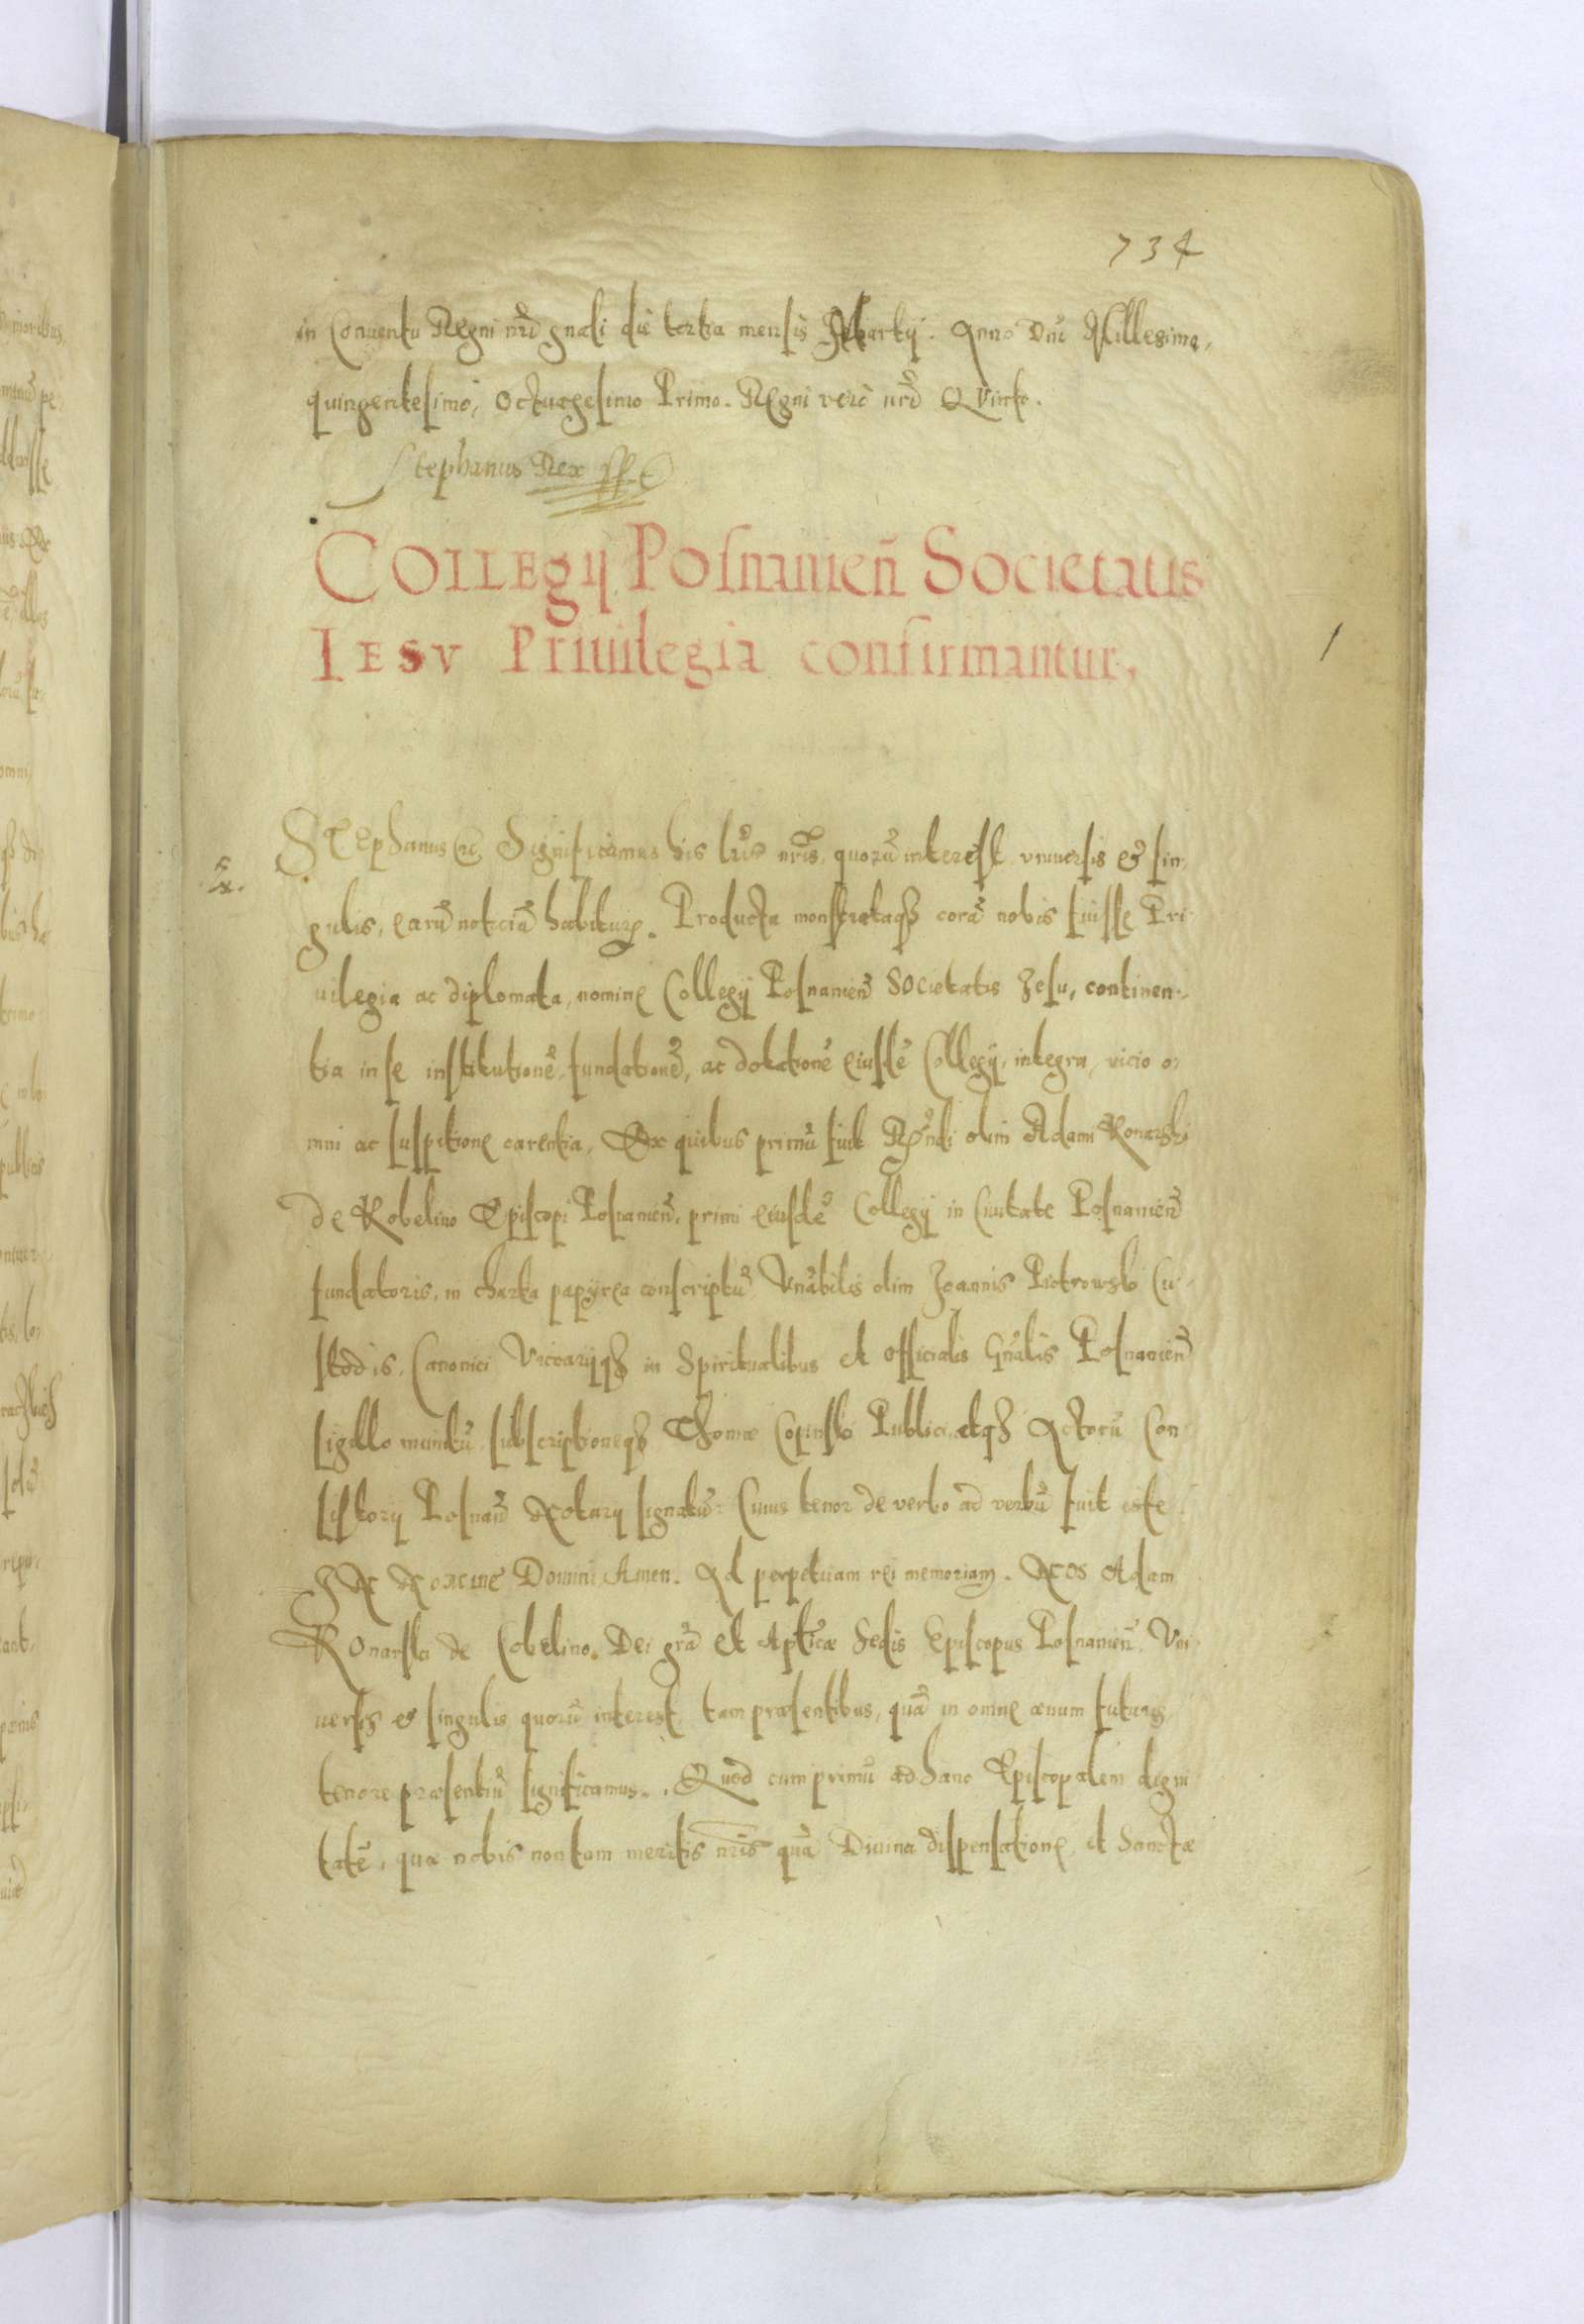 734
in Conuentu Regni nrõ gnali die tertia mensis Martij. Anno Dni Millesimo,
quingentesimo, Octuagesimo Primo. Regni verò nrĩ QVinto.
Stephanus Rex
COLLEgij Posnanieñ Societatis
IESV Priuilegia confirmantur,
STEphanus etc Significamus his lris nris, quorũ interest vniuersis & sin,
gulis, earũ noticiã habituris. Producta monstrataqȝ corã nobis fuisse Pri
uilegia ac diplomata, nomine Collegij Posnanieñ SOcietatis Jesu, continen-
tia in se institutionẽ, fundationẽ, ac dotationẽ eiusdẽ Collegij, integra, vicio o,
mni ac suspitione carentia, Ex quibus primũ fuit Rñdi olim Adami Konarski
de Kobelino Episcopi Posnanieñ, primi eiusdẽ Collegij in Ciuitate Posnanieñ
fundatoris, in charta papyrea conscriptũ, Vnãbilis olim Joannis Piotrowski Cu-
stodis, Canonici Vicarijqȝ in Spiritualibus et Officialis Gnãlis Posnanieñ
sigillo munitũ, subscriptioneqȝ Thomæ Publici atqȝ Actorũ Con
sistorij Posnañ Notarij signatũ: Cuius tenor de verbo ad verbũ fuit iste.
IN Nomine Domini Amen. Ad perpetuam rei memoriam. Nos Adam
KOnarski de Cobelino. Dei grã et Aplicæ Sedis Episcopus Posnanieñ. Vni
uersis & singulis quorũ interest, tam præsentibus, quã in omne æuum futuris,
tenore præsentiũ significamus. Quod cum primũ ad hanc Episcopalem digni
tatẽ, quæ nobis non tam meritis nris quã Diuina dispensatione, et Sanctæ